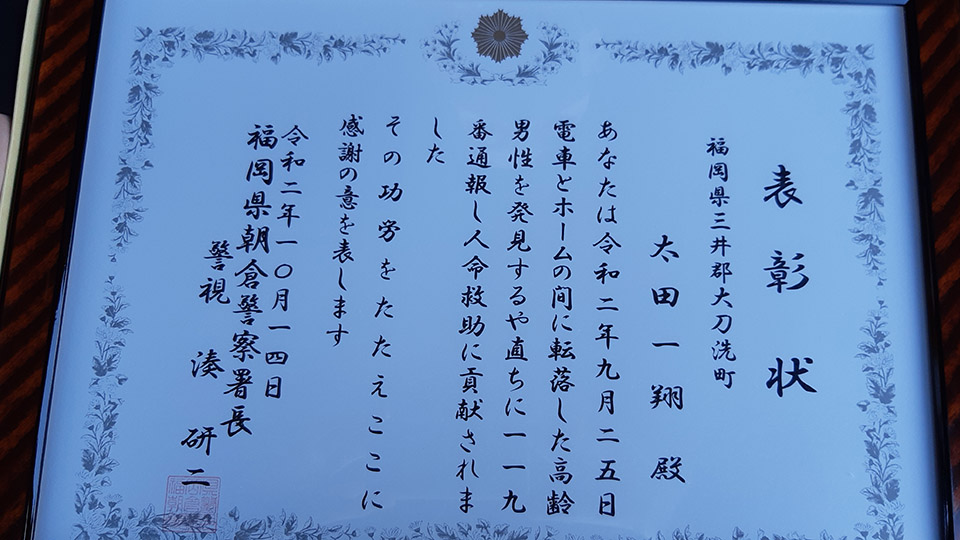 表彰状
福岡県三井郡大刀洗町
太田一翔殿
あなたは令和二年九月二五日
電車とホームの間に転落した高齢
男性を発見するや直ちに一一九
番通報し人命救助に貢献されま
した
その功労をたたえここに
感謝の意を表します
令和二年一〇月一四日
福岡県朝倉警察署長
警視 湊 研二